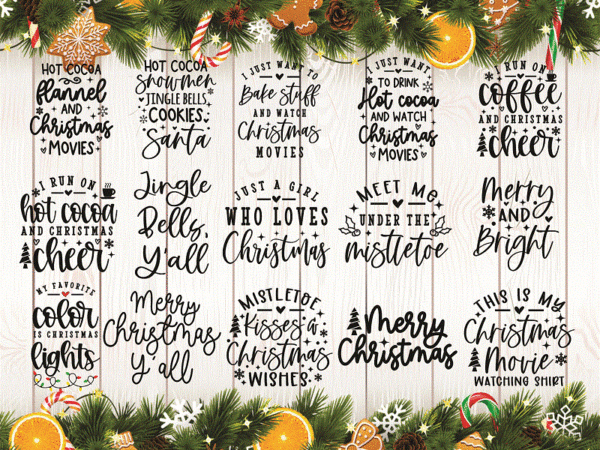 HOT COCOA
flannel
AND
Christmas
MOVIES
HOT COCOA
Snowmen
JINGLE BELLS
COOKIES
Santa
I JUST WANT TO
Bake stuff
AND WATCH
Christmas
MOVIES
I JUST WANT
TO DRINK
Hot cocoa
AND WATCH
Christmas
MOVIES
I RUN ON
coffee
AND CHRISTMAS
cheer
I RUN ON
hot cocoa
AND CHRISTMAS
cheer
Jingle
Bells,
Y'all
JUST A GIRL
WHO LOVES
Christmas
MEET ME
UNDER THE
mistletoe
Merry
AND
Bright
MY FAVORITE
color
IS CHRISTMAS
lights
Merry
Christmas
Y'all
MISTLETOE
Kisses &
Christmas
WISHES
Merry
Christmas
THIS IS MY
Christmas
Movie
WATCHING SHIRT